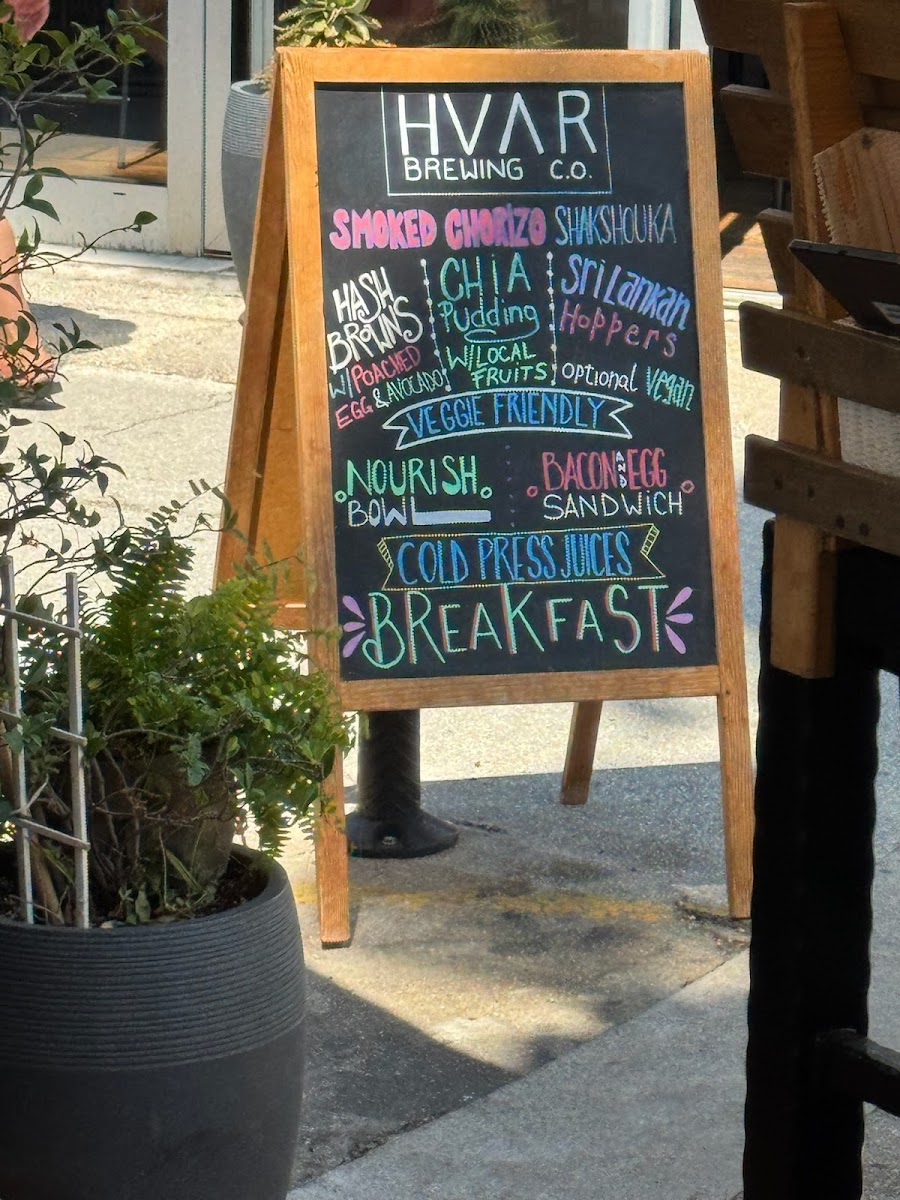 HVAR
BREWING C.O.
SMOKED CHORIZO SHAKSHOUKA
HASH
BROWNS
W/ POACHED
EGG & AVOCADO
CHIA
Pudding
W/ LOCAL
FRUITS
Sri Lankan
Hoppers
optional vegan
VEGGIE FRIENDLY
NOURISH
BOWL
BACON AND EGG
SANDWICH
COLD PRESS JUICES
BREAKFAST